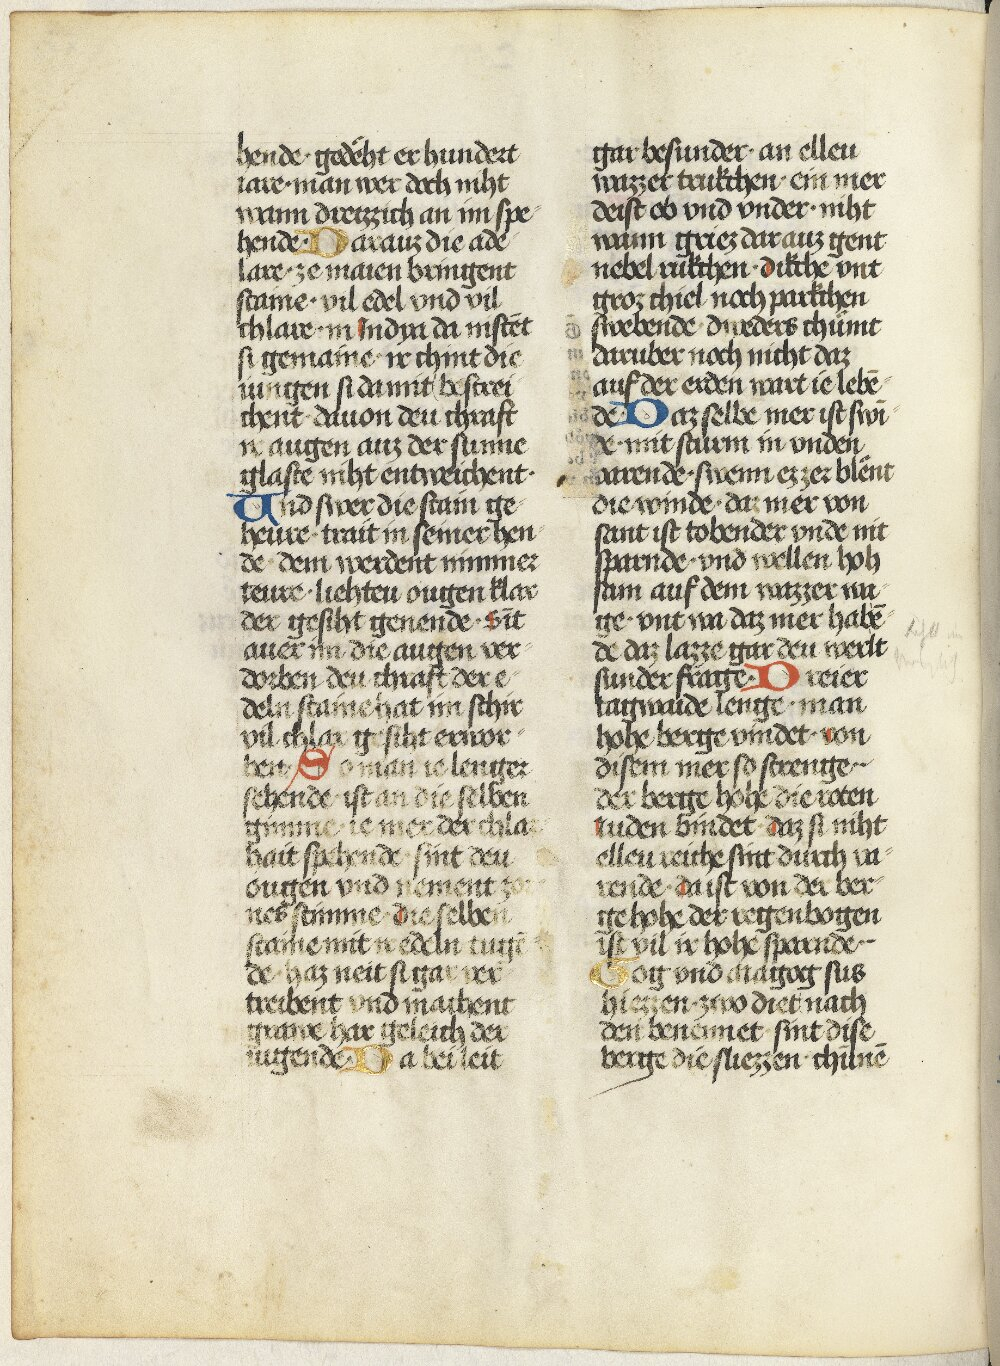 hende· gedeht er hundert
iare· man wer doch niht
wann dreizzich an im spe-
hende· Darauz die ade
lare· ze maien bringent
staine· vil edel vnd vil
chlare· in Indya da nistēt
si gemaine· ir chint die
iungen si da mit bestrei
chent· dauon deu chraft
ir augen auz der sunne
glaste niht entweichent·
Und swer die stain ge-
heure· trait in seiner hen-
de· dem werdent nimmer
teure· liehteu ougen klar
der gesiht genende· Sīt
auer im die augen ver-
dorben deu chraft der e-
deln staine hat im schir
vil chlar gesiht erwor-
ben· So man ie lenger
sehende· ist an die selben
gimme· ie mer der chlar
hait spehende· sint deu
ougen vnd nement zor
nes stimme· die selben
staine mit ir edeln tugē
de· haz neit si gar ver
treibent vnd machent
grawe har geleich der
iugende· Da bei leit
gar besunder· an elleu
wazzer trukchen· ein mer
deist ob vnd vnder· niht
wann griez dar auz gent
nebel rukchen· dikche vnt
groz chiel noch parkchen
swebende· dweders chūmt
daruber noch nicht daz
auf der erden wart ie lebē-
de· Daz selbe mer ist swi-
de· mit sturm in vnden
varende· swenn ez zer blēnt
die winde· daz mer von
sant ist tobender vnde nit
sparnde· vnd wellen hoh
sam auf dem wazzer wa-
ge· vnt wa daz mer habē-
de daz lazze gar deu werlt
sunder frage· Dreier
tagwaide lenge· man
hohe berge vindet· von
disem mer so strenge··
der berge hohe die roten
iuden bindet· daz si niht
elleu reiche sint durch va-
rende· da ist von der ber-
ge hohe der regenbogen
ist vil ir hohe sparnde··
Gog vnd Magog sus
hiezzen· zwo diet nach
den benennet· sint dise
berge die sliezzen· chūnē